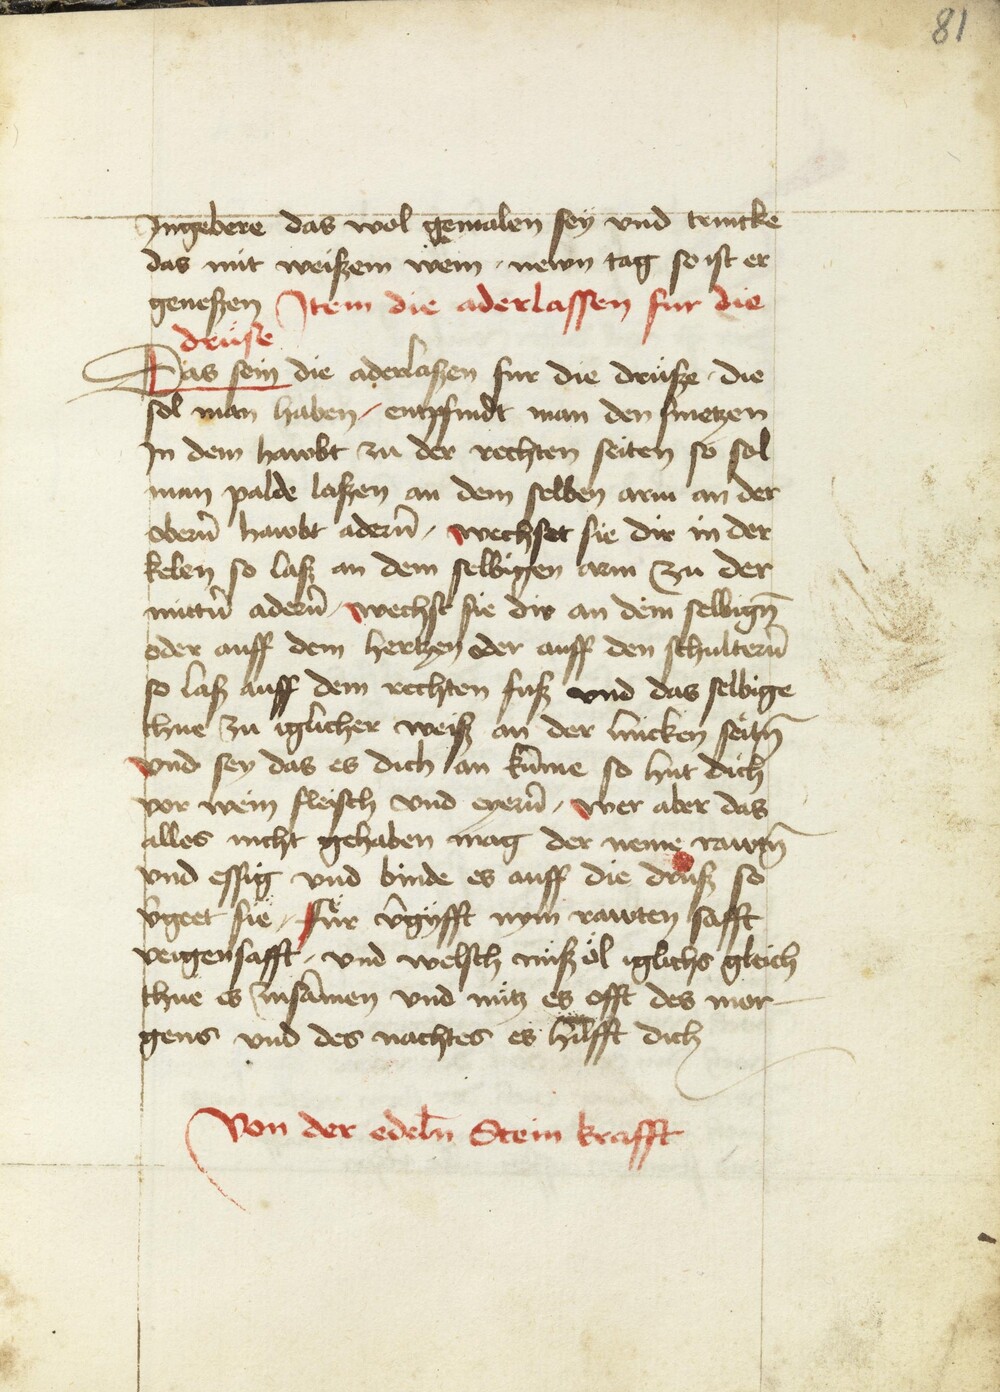 81
Jngebere das wol gemalen sey vnd trincke
das mit weißem wein / newn tag so ist er
geneßen Jtem die aderlassen fur die
drüse
Das sein die aderlaßen fur die drüße / die
sol man haben / entpfindt man den smetzen
Jn dem hawbt zu der rechten seiten so sol
man palde laßen an dem selben arm an der
obern̄ hawbt adern̄ / wechset sie dir in der
kelen so laß an dem selbigen arm zu der
mittn̄ adern̄ / wechst sie dir an dem selbign̄
oder auff dem hertzen oder auff den schultern̄
so laß auff dem rechten fuß vnd das selbige
thue zu iglicher weiß an der lincken seitn̄
vnd sey das es dich an kūme so hut dich
vor wein fleisch vnd eyern̄ / wer aber das
alles nicht gehaben mag der neme rawtn̄
vnd essig vnd binde es auff die druß so
v̄geet sie / für v̄gyfft nym rawten safft
veigensafft / vnd welsch nuß öl iglichs gleich
thue es zusāmen vnd nütz es offt des mor
gens vnd des nachtes es hilfft dich
Von der edeln̄ Stein krafft